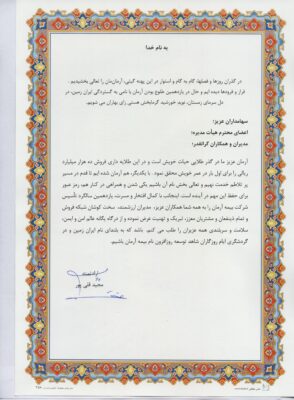 به نام خدا
در گذران روزها و فصلها، گام به گام و استوار در این پهنه گیتی، آرمان‌مان را تعالی بخشیدیم .
فراز و فرودها دیده ایم و حال در یازدهمین طلوع بودن آرمان با نامی به گستردگی ایران زمین، در
دل سرمای زمستان، نوید خورشید گرمابخش هستی رای بهاران می شویم.
سهامداران عزیز؛
اعضای محترم هیأت مدیره؛
مدیران و همکاران گرانقدر؛
آرمان عزیز ما در گذر طلایی حیات خویش است و در این طلایه داری فروش ده هزار میلیارد
ریالی را برای اول بار در عمر خویش محقق نمود. با یکدیگر، هم آرمان شده ایم تا قدم در مسیر
پر تلاطم خدمت نهیم و تعالی بخش نام آن باشیم یکی شدن و همراهی در کنار هم، رمز عبور
برای حفظ این مهم در آینده است. اینجانب با کمال افتخار و مسرت، یازدهمین سالگرد تأسیس
شرکت بیمه آرمان را به همه شما همکاران عزیز، مدیران ارزشمند، سخت کوشان شبکه فروش
و تمام ذینفعان و مشتریان معزز، تبریک و تهنیت عرض نموده و از درگاه یگانه عالم امن و ایمن،
سلامت و سربلندی همه عزیزان را طلب می کنم. باشد که به بلندای نام ایران زمین و در
گردشگری ایام روزگاران شاهد توسعه روزافزون نام بیمه آرمان باشیم.
ارادتمند
مجید قلی پور